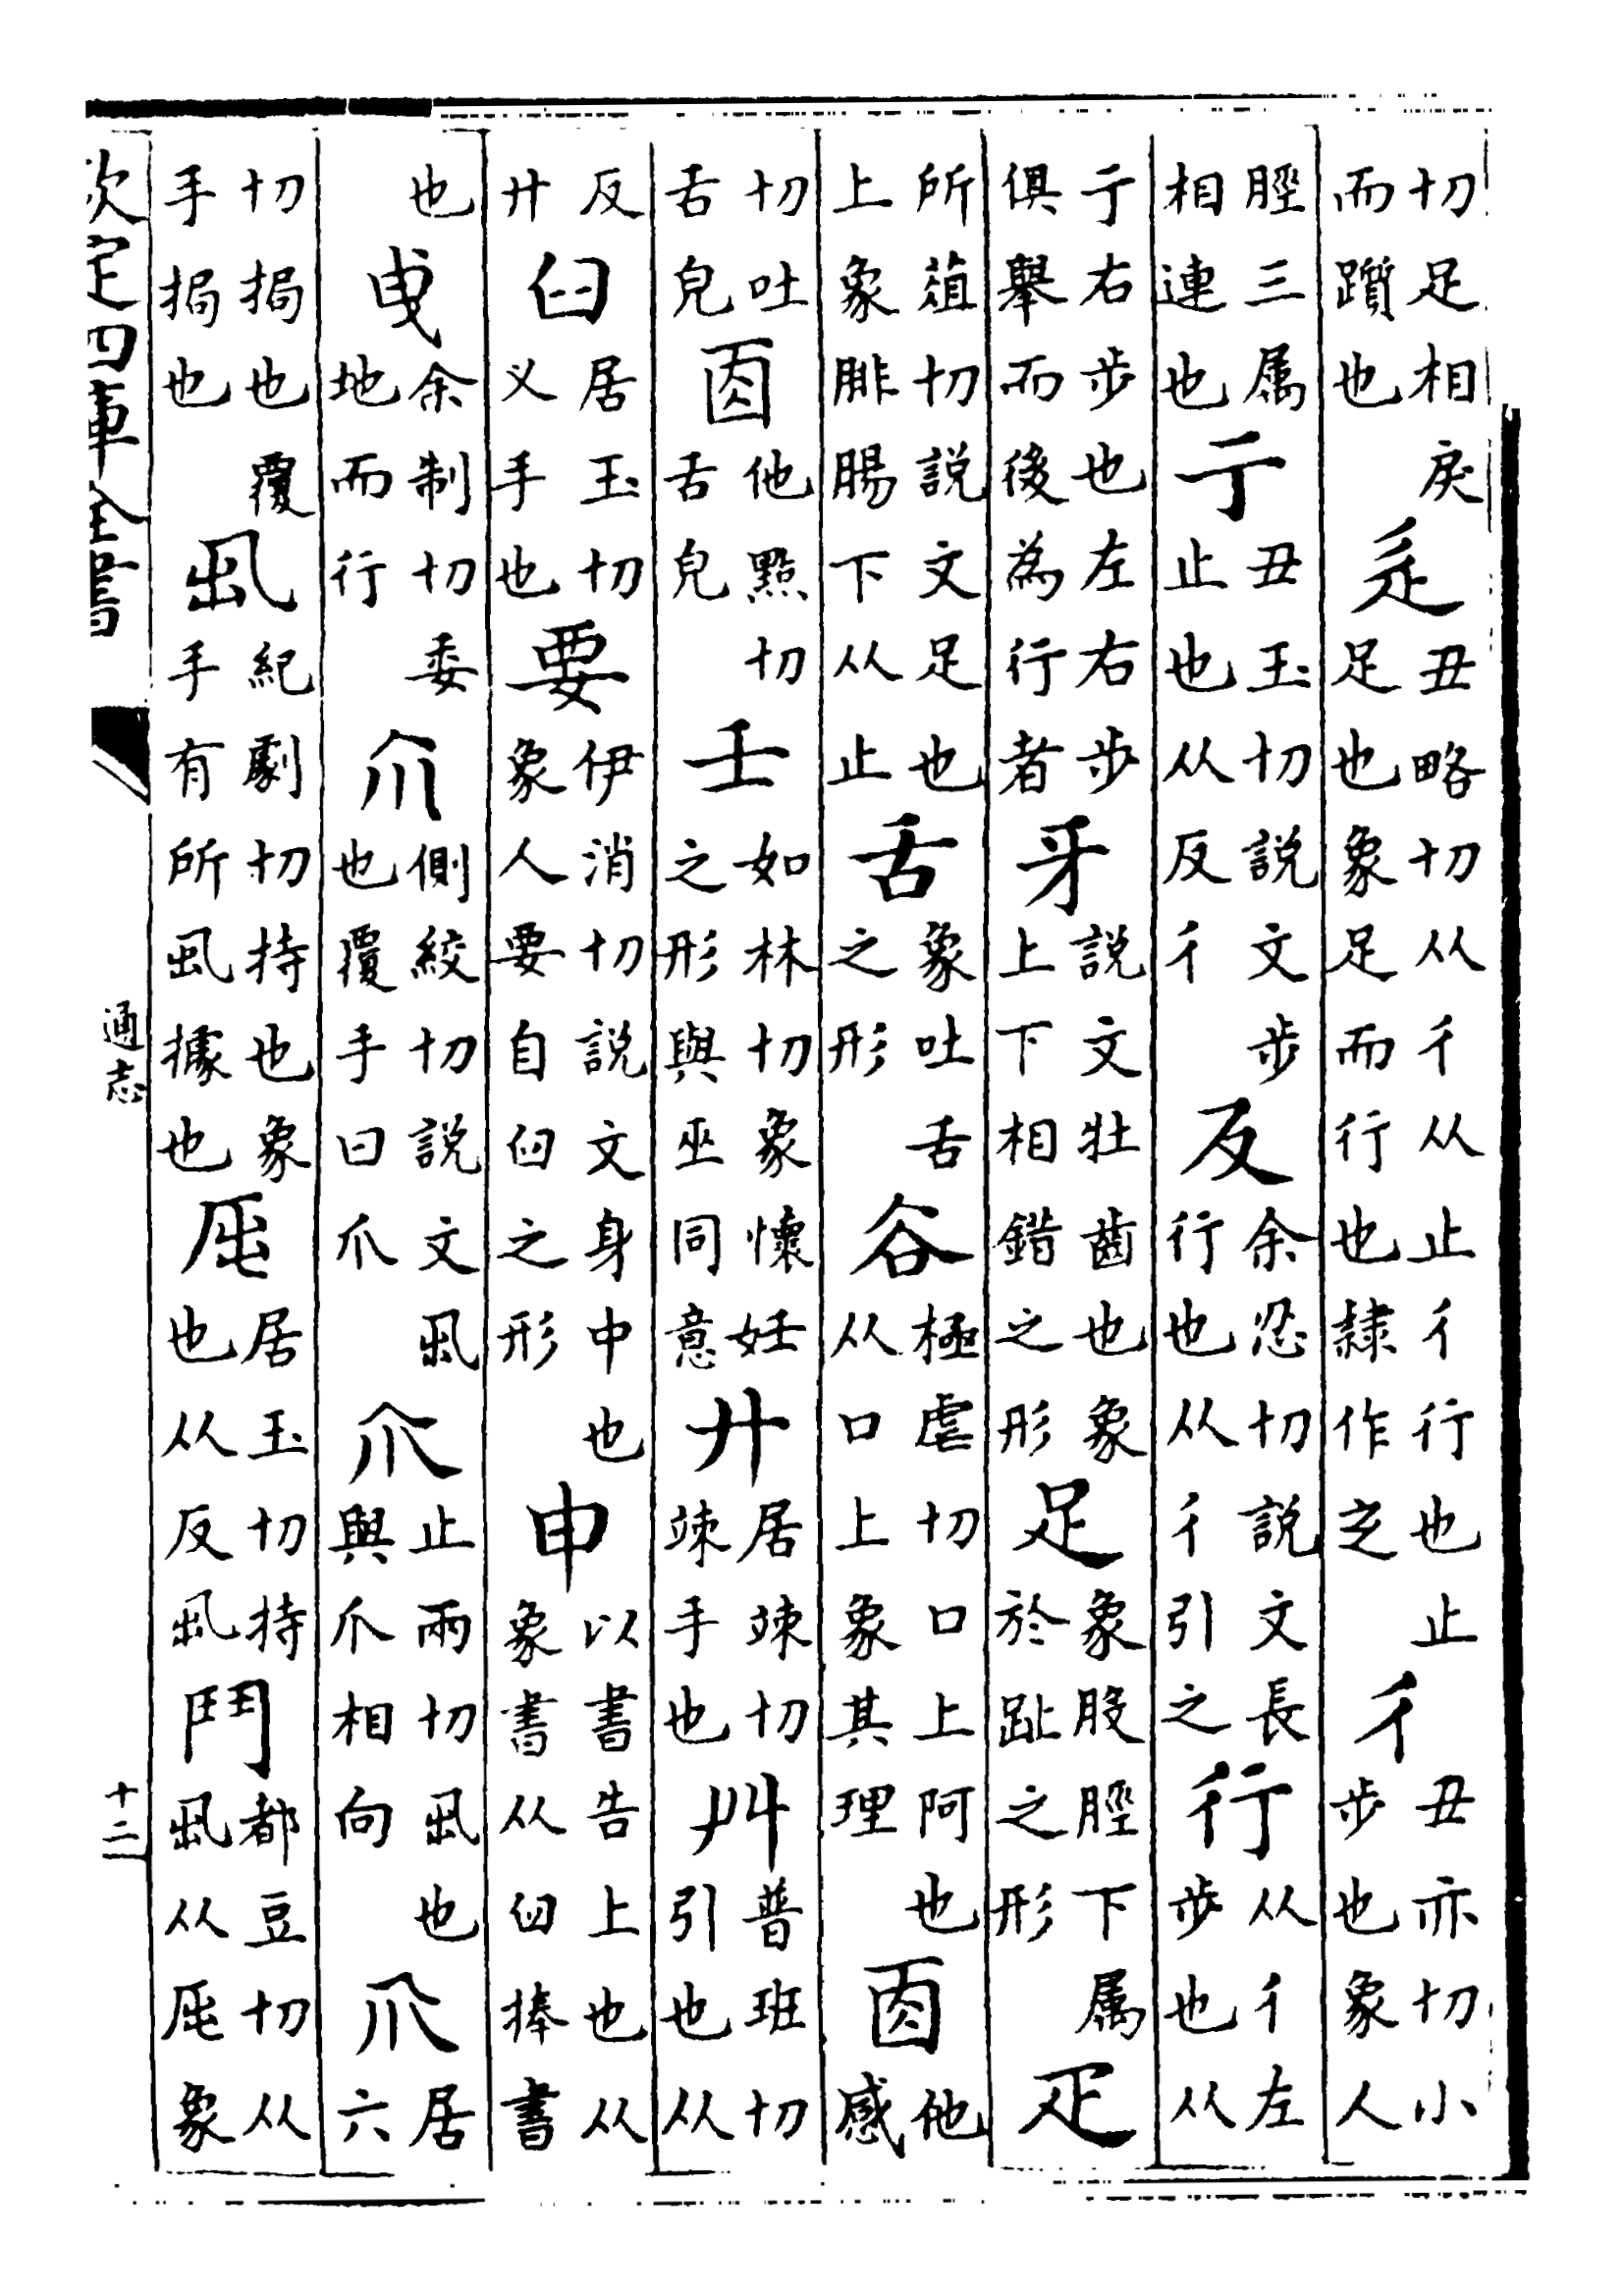 切足相戾而躓也辵丑略切从彳从止彳行也止足也象足而行也隸作之彳丑亦切小步也象人
脛三属相連也亍丑玉切說文步止也从反彳𠬛余忍切說文長行也从彳引之行从彳左步也从
亍右步也左右步俱舉而後為行者牙說文壯齒也象上下相錯之形足象股脛下属於趾之形疋
所葅切說文足也上象腓腸下从止舌象吐舌之形谷極虐切口上阿也从口上象其理㐁他感
切吐舌皃㐁他點切舌皃壬如林切象懷妊之形與巫同意廾居竦切竦手也𠬜普班切引也从
反廾𦥑居玉切义手也要伊消切說文身中也象人要自𦥑之形申以書告上也从𦥑捧書象書
也曳余制切委地而行爪側絞切說文丮也覆手曰爪爪止兩切丮也與爪相向爪居六
切挶也覆手挶也丮紀劇切持也象手有所丮據也𡳾居玉切持也从反丮鬥都豆切从丮从𡳾象
欽定四庫全書
通志
十二